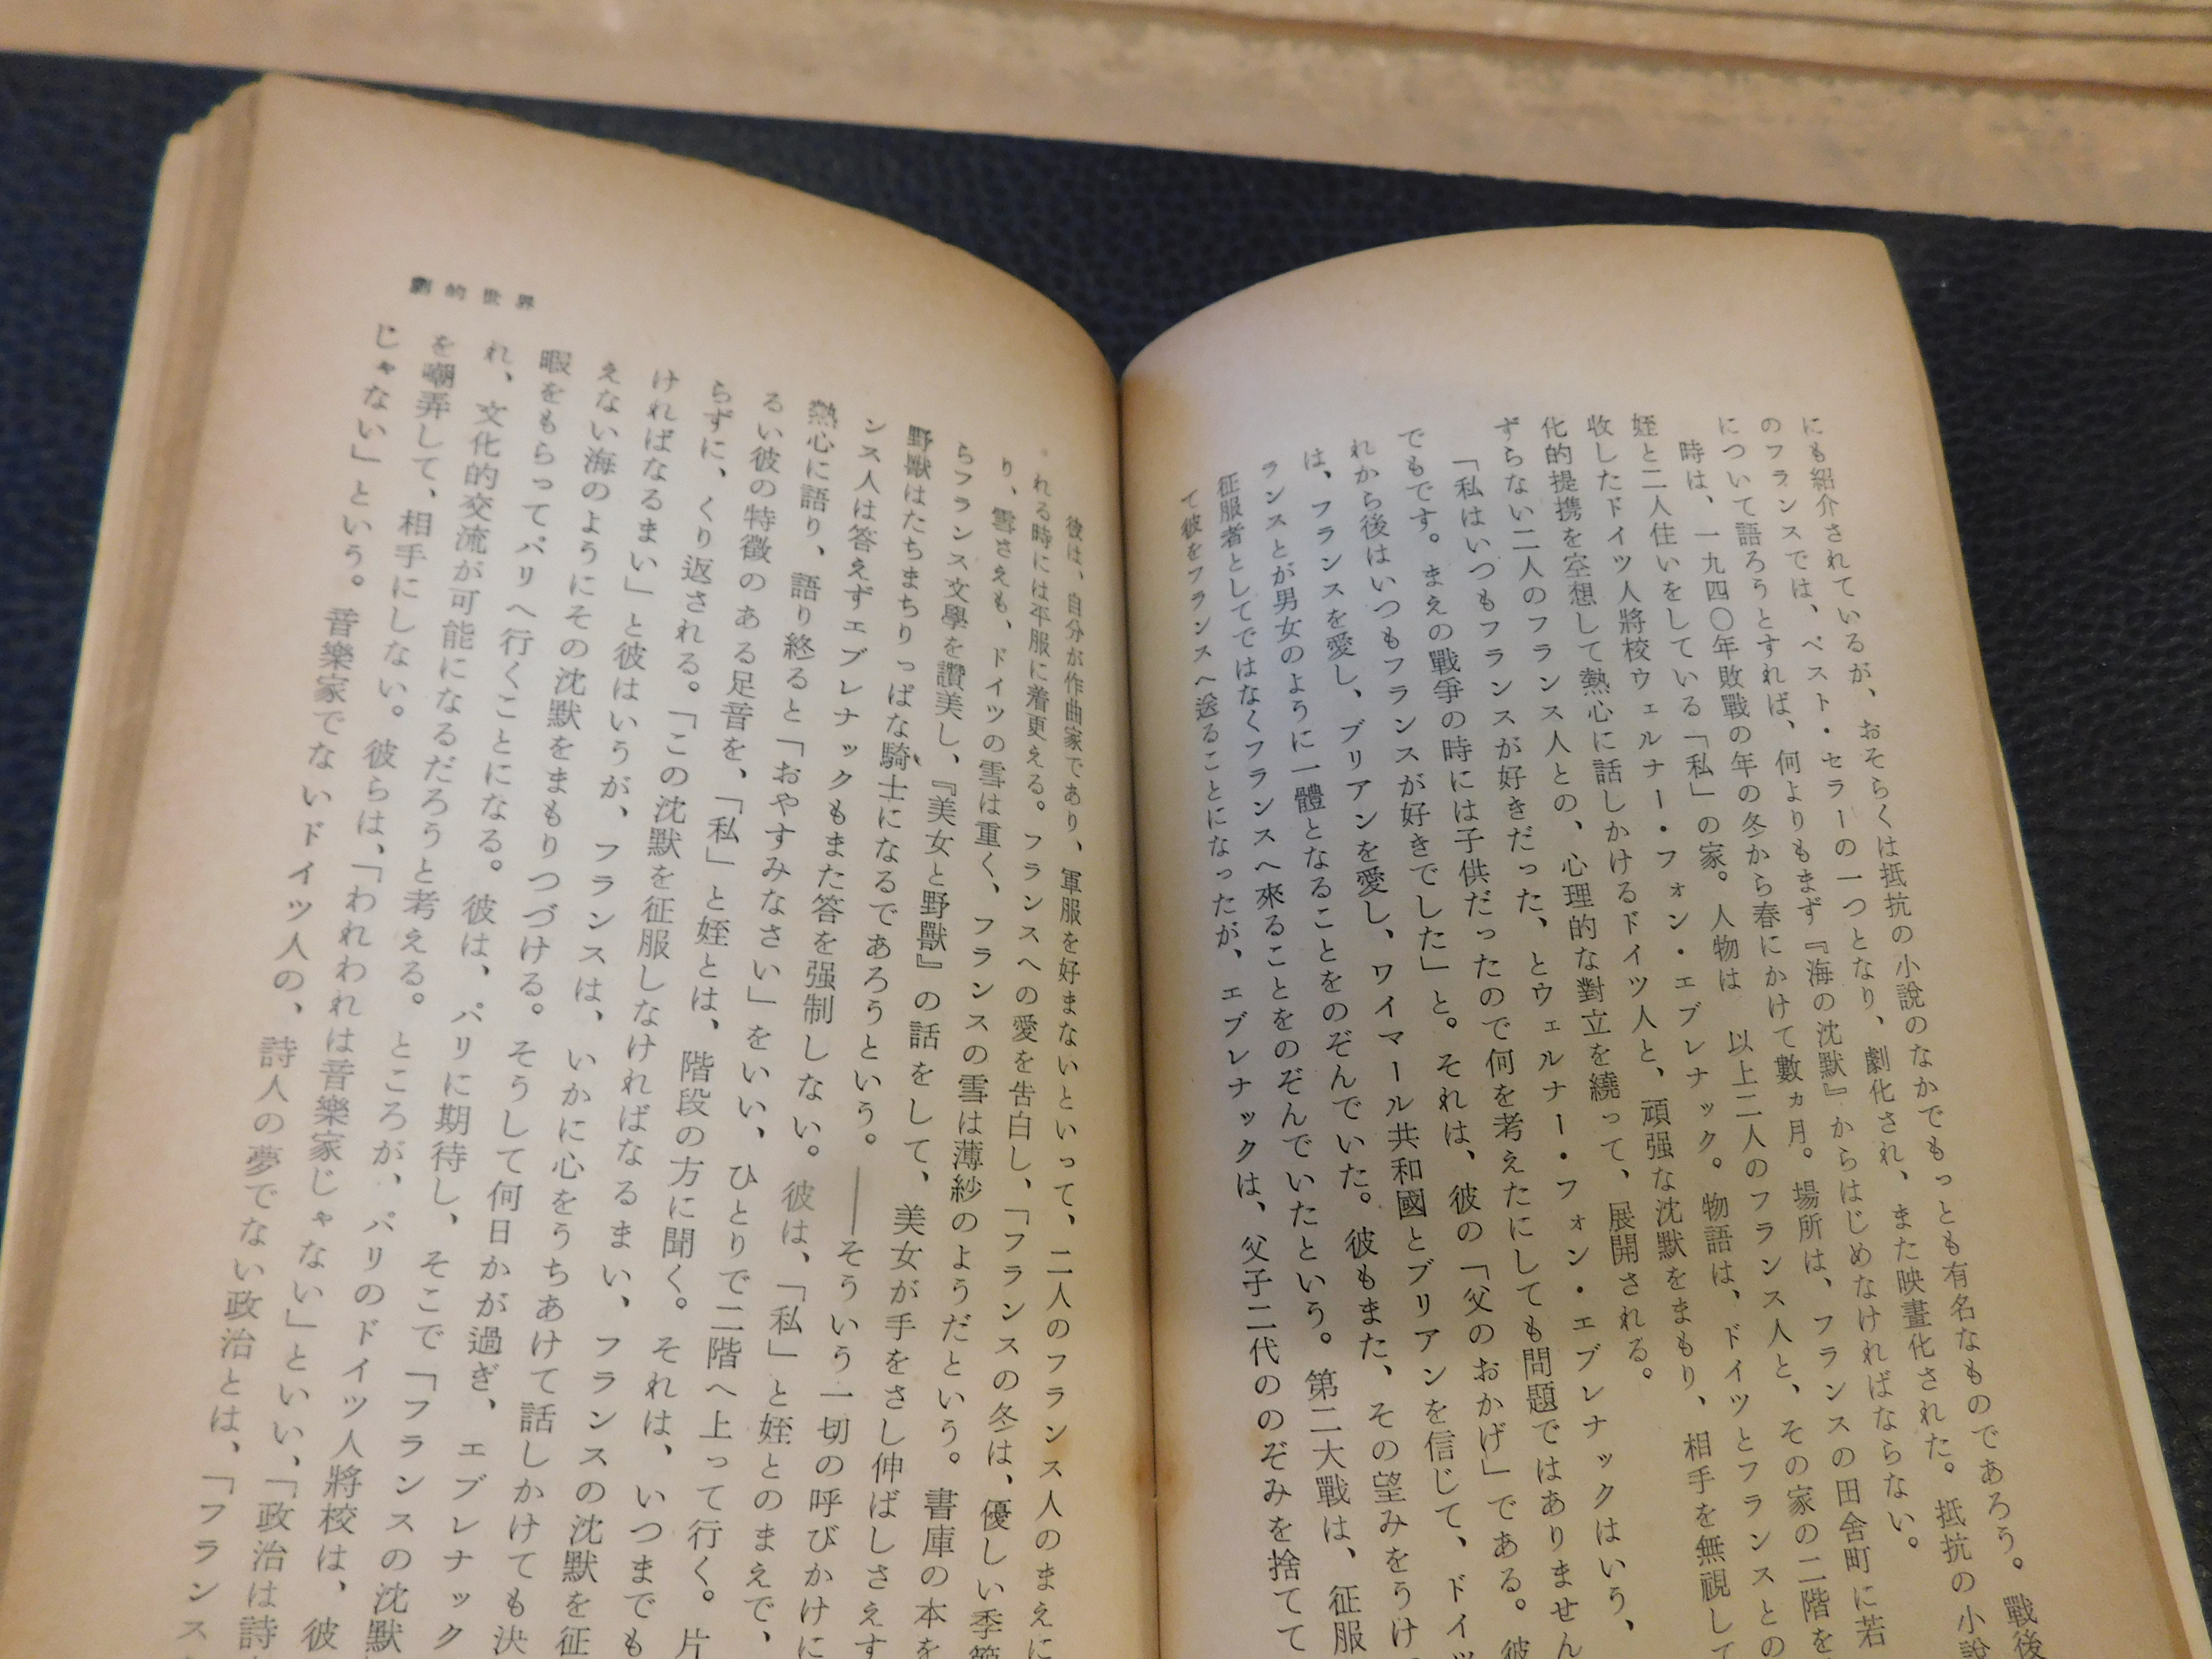 にも紹介されているが、おそらくは抵抗の小説のなかでもっとも有名なものであろう。戰後
のフランスでは、ベスト・セラーの一つとなり、劇化され、また映畫化された。抵抗の小説
について語ろうとすれば、何よりもまず『海の沈默』からはじめなければならない。
時は、一九四〇年敗戰の年の冬から春にかけて數ヵ月。場所は、フランスの田舎町に若
姪と二人住いをしている「私」の家。人物は 以上二人のフランス人と、その家の二階を
收したドイツ人將校ウェルナー・フォン・エブレナック。物語は、ドイツとフランスとの
化的提携を空想して熱心に話しかけるドイツ人と、頑强な沈默をまもり、相手を無視して
ずらない二人のフランス人との、心理的な對立を繞って、展開される。
「私はいつもフランスが好きだった、とウェルナー・フォン・エブレナックはいう、
でもです。まえの戰爭の時には子供だったので何を考えたにしても問題ではありません
れから後はいつもフランスが好きでした」と。それは、彼の「父のおかげ」である。彼
は、フランスを愛し、ブリアンを愛し、ワイマール共和國とブリアンを信じて、ドイツ
ランスとが男女のように一體となることをのぞんでいた。彼もまた、その望みをうけ
征服者としてではなくフランスへ來ることをのぞんでいたという。第二大戰は、征服
て彼をフランスへ送ることになったが、エブレナックは、父子二代ののぞみを捨てて
彼は、自分が作曲家であり、軍服を好まないといって、二人のフランス人のまえに
れる時には平服に着更える。フランスへの愛を告白し、「フランスの冬は、優しい季節
り、雪さえも、ドイツの雪は重く、フランスの雪は薄紗のようだという。書庫の本を
らフランス文學を讚美し、『美女と野獸』の話をして、美女が手をさし伸ばしさえす
野獸はたちまちりっぱな騎士になるであろうという。――そういう一切の呼びかけに
ンス人は答えずエブレナックもまた答を强制しない。彼は、「私」と姪とのまえで、
熱心に語り、語り終ると「おやすみなさい」をいい、ひとりで二階へ上って行く。片
るい彼の特徵のある足音を、「私」と姪とは、階段の方に聞く。それは、いつまでも
らずに、くり返される。「この沈默を征服しなければなるまい、フランスの沈默を征
ければなるまい」と彼はいうが、フランスは、いかに心をうちあけて話しかけても決
えない海のようにその沈默をまもりつづける。そうして何日かが過ぎ、エブレナック
暇をもらってパリへ行くことになる。彼は、パリに期待し、そこで「フランスの沈默
れ、文化的交流が可能になるだろうと考える。ところが、パリのドイツ人將校は、彼
を嘲弄して、相手にしない。彼らは、「われわれは音樂家じゃない」といい、「政治は詩
じゃない」という。音樂家でないドイツ人の、詩人の夢でない政治とは、「フランス
劇的世界